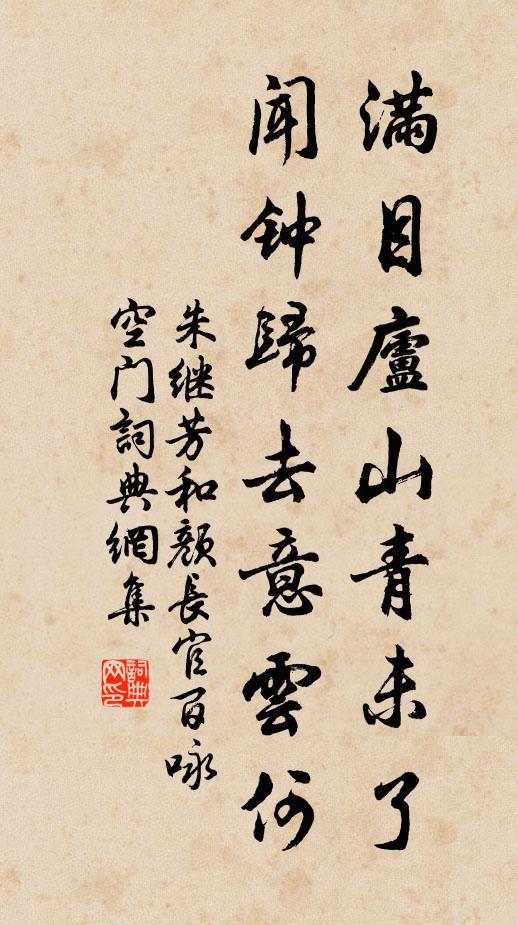 满目廬山青未了
闻钟歸去意雲何
朱继芳和颜長官百咏
空门詞典網集
詞典网印